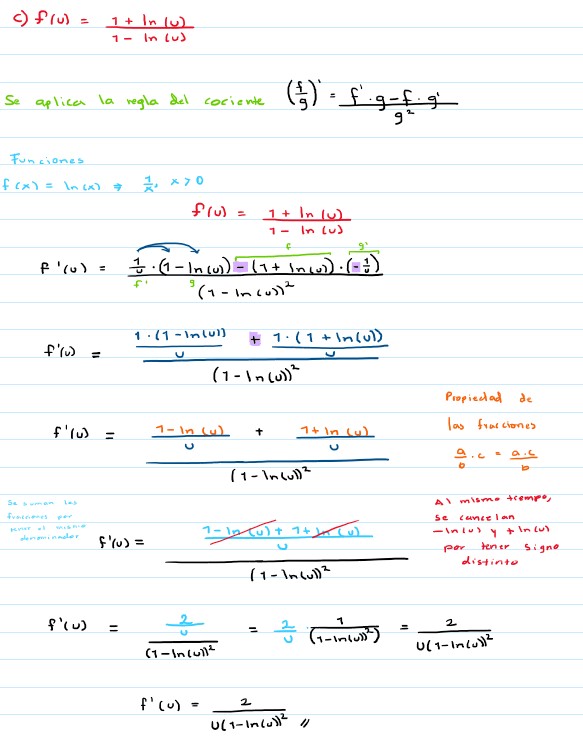 c) f(u) = (1 + ln(u))/(1 - ln(u))
Se aplica la regla del cociente (f/g)' = (f' · g - f · g')/g²
Funciones
f(x) = ln(x) ⇒ 1/x, x > 0
f(u) = (1 + ln(u))/(1 - ln(u))
f g'
f'(u) = (1/u · (1 - ln(u)) - (1 + ln(u)) · (-1/u))/(1 - ln(u))²
f' g
f'(u) = ((1 · (1 - ln(u)))/u + (1 · (1 + ln(u)))/u)/(1 - ln(u))²
Propiedad de
las fracciones
a/b · c = a.c/b
f'(u) = ((1 - ln(u))/u + (1 + ln(u))/u)/(1 - ln(u))²
Se suman las
fracciones por
tener el mismo
denominador
Al mismo tiempo,
se cancelan
-ln(u) y +ln(u)
por tener signo
distinto
f'(u) = ((1 - ln(u) + 1 + ln(u))/u)/(1 - ln(u))²
f'(u) = (2/u)/(1 - ln(u))² = 2/u · 1/(1 - ln(u)²) = 2/(u(1 - ln(u))²)
f'(u) = 2/(u(1 - ln(u))²) //